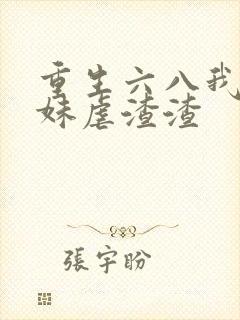 重生六八我
妹虐渣渣
張宇盼